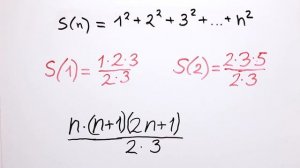 S(n) = 1² + 2² + 3² + ... + n²
S(1) = 1·2·3 / 2·3    S(2) = 2·3·5 / 2·3
n·(n+1)(2n+1) / 2·3